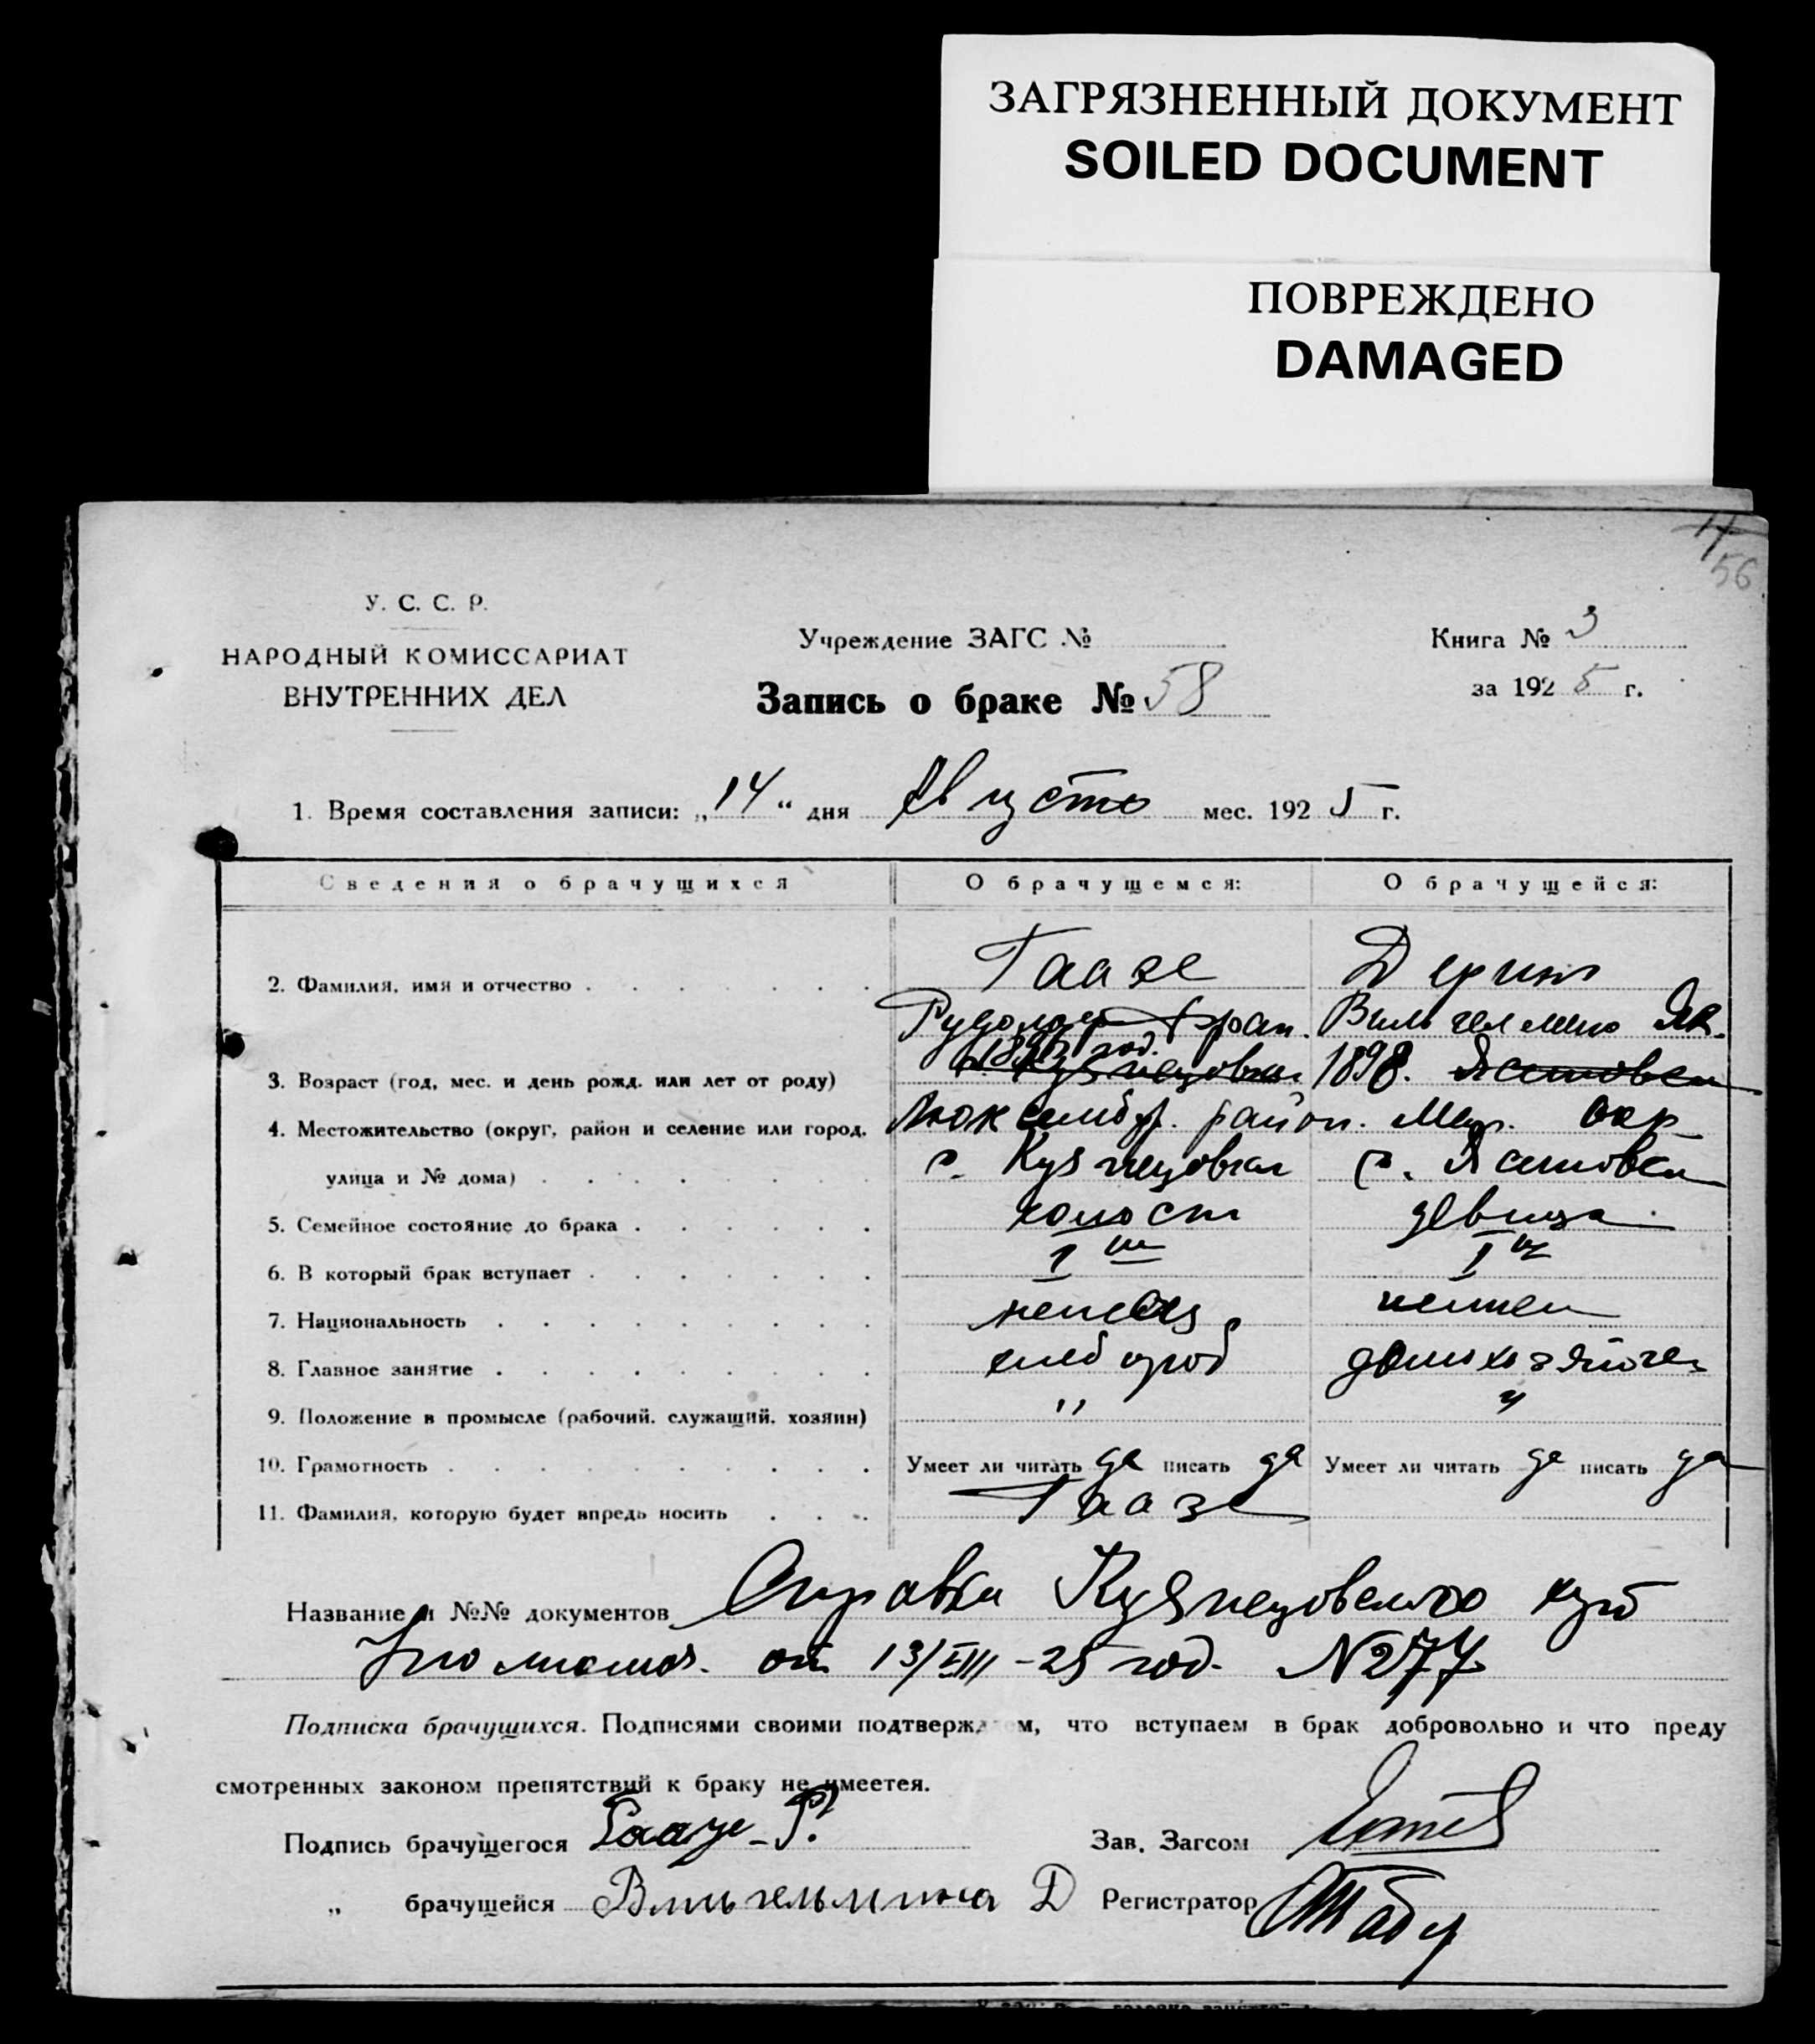 ЗАГРЯЗНЕННЫЙ ДОКУМЕНТ
SOILED DOCUMENT
ПОВРЕЖДЕНО
DAMAGED
56
У. С. С. Р.
НАРОДНЫЙ КОМИССАРИАТ
ВНУТРЕННИХ ДЕЛ
Учреждение ЗАГС №
Запись о браке № 58
Книга № 3
за 1925 г.
1. Время составления записи: „14“ дня Августа мес. 1925 г.
Сведения о брачущихся О брачущемся: О брачущейся:
2. Фамилия, имя и отчество Гаазе Деринг
Рудольф Фран. Вильгельмина Як.
3. Возраст (год, мес. и день рожд. или лет от роду) год. 1898.
4. Местожительство (округ, район и селение или город, Люксембург. район. Мар. окр
улица и № дома) с. Кузнецовка с. Ясиновка
5. Семейное состояние до брака холост девица
6. В который брак вступает I й I й
7. Национальность немец немка
8. Главное занятие хлебороб домохозяйка
9. Положение в промысле (рабочий, служащий, хозяин) " "
10. Грамотность Умеет ли читать да писать да Умеет ли читать да писать да
11. Фамилия, которую будет впредь носить Гаазе
Название и №№ документов Справка Кузнецовского
от 13/VIII-25 год. N 277
Подписка брачущихся. Подписями своими подтверждаем, что вступаем в брак добровольно и что преду
смотренных законом препятствий к браку не имеется.
Подпись брачущегося Гаазе Р. Зав. Загсом
„ брачущейся Вильгельмина Д Регистратор